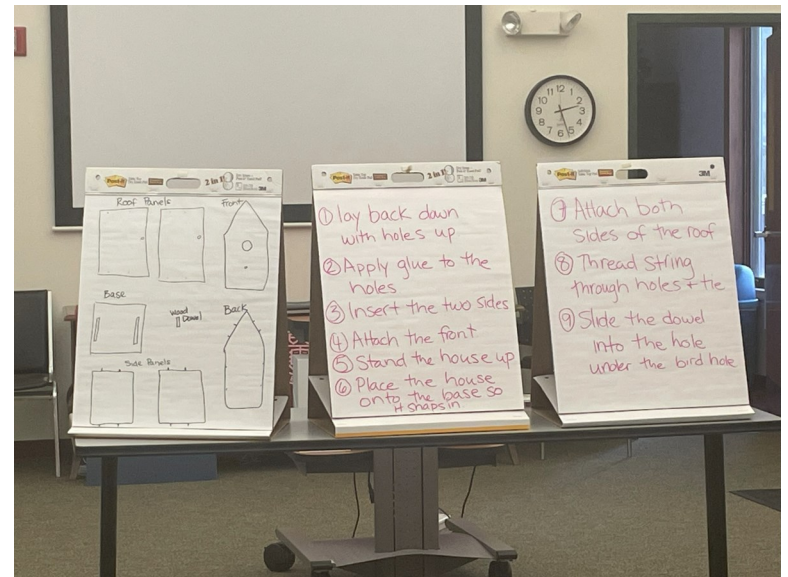 Post-it
2 in 1
3M
Roof Panels
Front
Base
Wood
Dowel
Back
Side Panels
Post-it
2 in 1
3M
① lay back down
with holes up
② Apply glue to the
holes
③ Insert the two sides
④ Attach the front
⑤ Stand the house up
⑥ Place the house
onto the base so
it snaps in
Post-it
3M
⑦ Attach both
sides of the roof
⑧ Thread string
through holes + tie
⑨ Slide the dowel
into the hole
under the bird hole
11 12 1
10 2
9 3
8 4
7 6 5